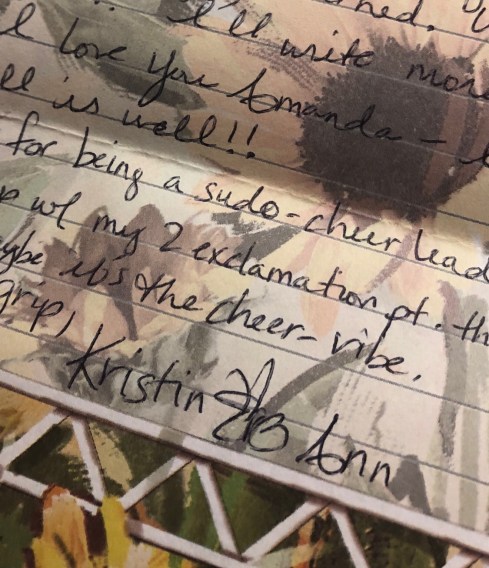 I'll write more
I love you Amanda –
ll is well!!
for being a sudo-cheer lead
w/ my 2 exclamation pt. th
ybe it's the cheer-vibe.
grip,
Kristin Ann